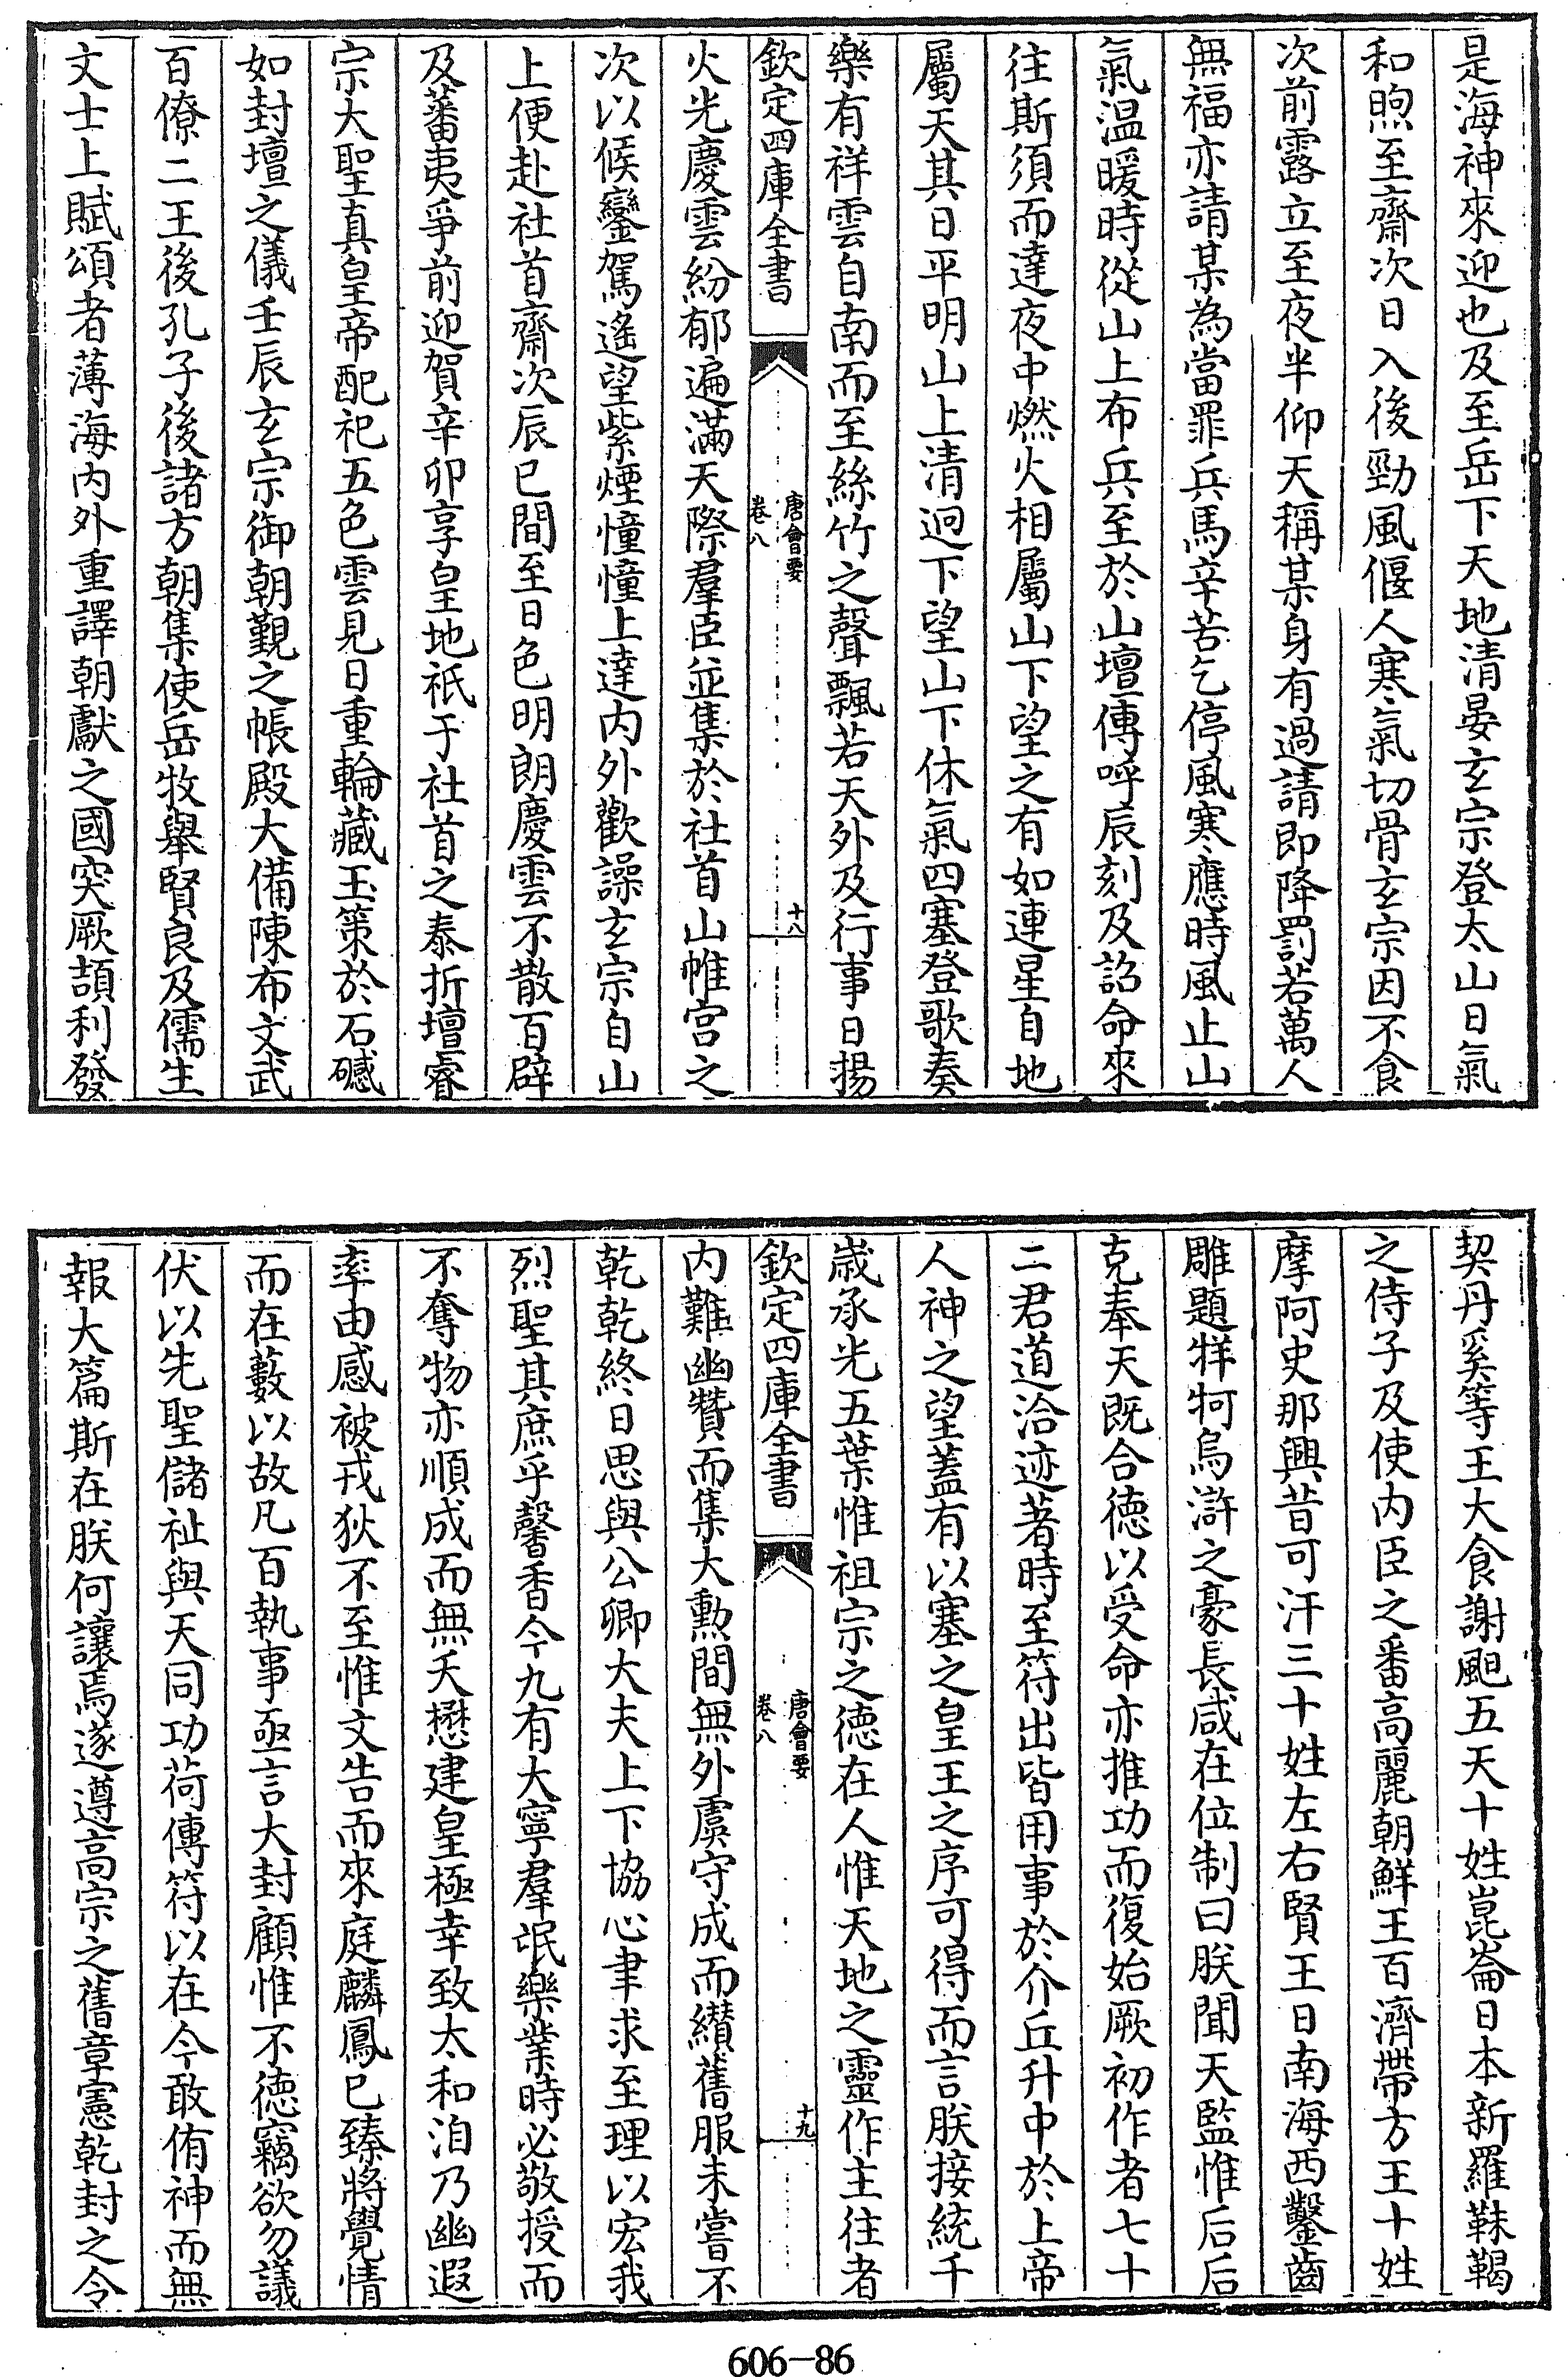 是海神來迎也及至岳下天地清晏玄宗登太山日氣
和煦至齋次日入後勁風偃人寒氣切骨玄宗因不食
次前露立至夜半仰天稱某身有過請即降罰若萬人
無福亦請某為當罪兵馬辛苦乞停風寒應時風止山
氣温暖時從山上布兵至於山壇傳呼辰刻及詔命來
往斯須而達夜中燃火相屬山下望之有如連星自地
屬天其日平明山上清迥下望山下休氣四塞登歌奏
樂有祥雲自南而至絲竹之聲飄若天外及行事日揚
欽定四庫全書
唐會要
卷八
十八
火光慶雲紛郁遍滿天際羣臣並集於社首山帷宫之
次以候鑾駕遙望紫煙憧憧上達内外歡譟玄宗自山
上便赴社首齋次辰巳間至日色明朗慶雲不散百辟
及蕃夷爭前迎賀辛卯享皇地祇于社首之泰折壇睿
宗大聖真皇帝配祀五色雲見日重輪藏玉策於石䃭
如封壇之儀壬辰玄宗御朝覲之帳殿大備陳布文武
百僚二王後孔子後諸方朝集使岳牧舉賢良及儒生
文士上賦頌者薄海内外重譯朝獻之國突厥頡利發
契丹奚等王大食謝䫻五天十姓崑崙日本新羅靺鞨
之侍子及使内臣之番高麗朝鮮王百濟帶方王十姓
摩阿史那興昔可汗三十姓左右賢王日南海西鑿齒
雕題牂牁烏滸之豪長咸在位制曰朕聞天監惟后后
克奉天既合德以受命亦推功而復始厥初作者七十
二君道洽迹著時至符出皆用事於介丘升中於上帝
人神之望蓋有以塞之皇王之序可得而言朕接統千
歲承光五葉惟祖宗之德在人惟天地之靈作主往者
欽定四庫全書
唐會要
卷八
十九
内難幽贊而集大勲間無外虞守成而纉舊服未嘗不
乾乾終日思與公卿大夫上下協心聿求至理以宏我
烈聖其庶乎馨香今九有大寧羣氓樂業時必敬授而
不奪物亦順成而無夭懋建皇極幸致太和洎乃幽遐
率由感被戎狄不至惟文告而來庭麟鳳已臻將覺情
而在藪以故凡百執事亟言大封顧惟不德竊欲勿議
伏以先聖儲祉與天同功荷傳符以在今敢侑神而無
報大篇斯在朕何讓焉遂遵高宗之舊章憲乾封之令
606-86